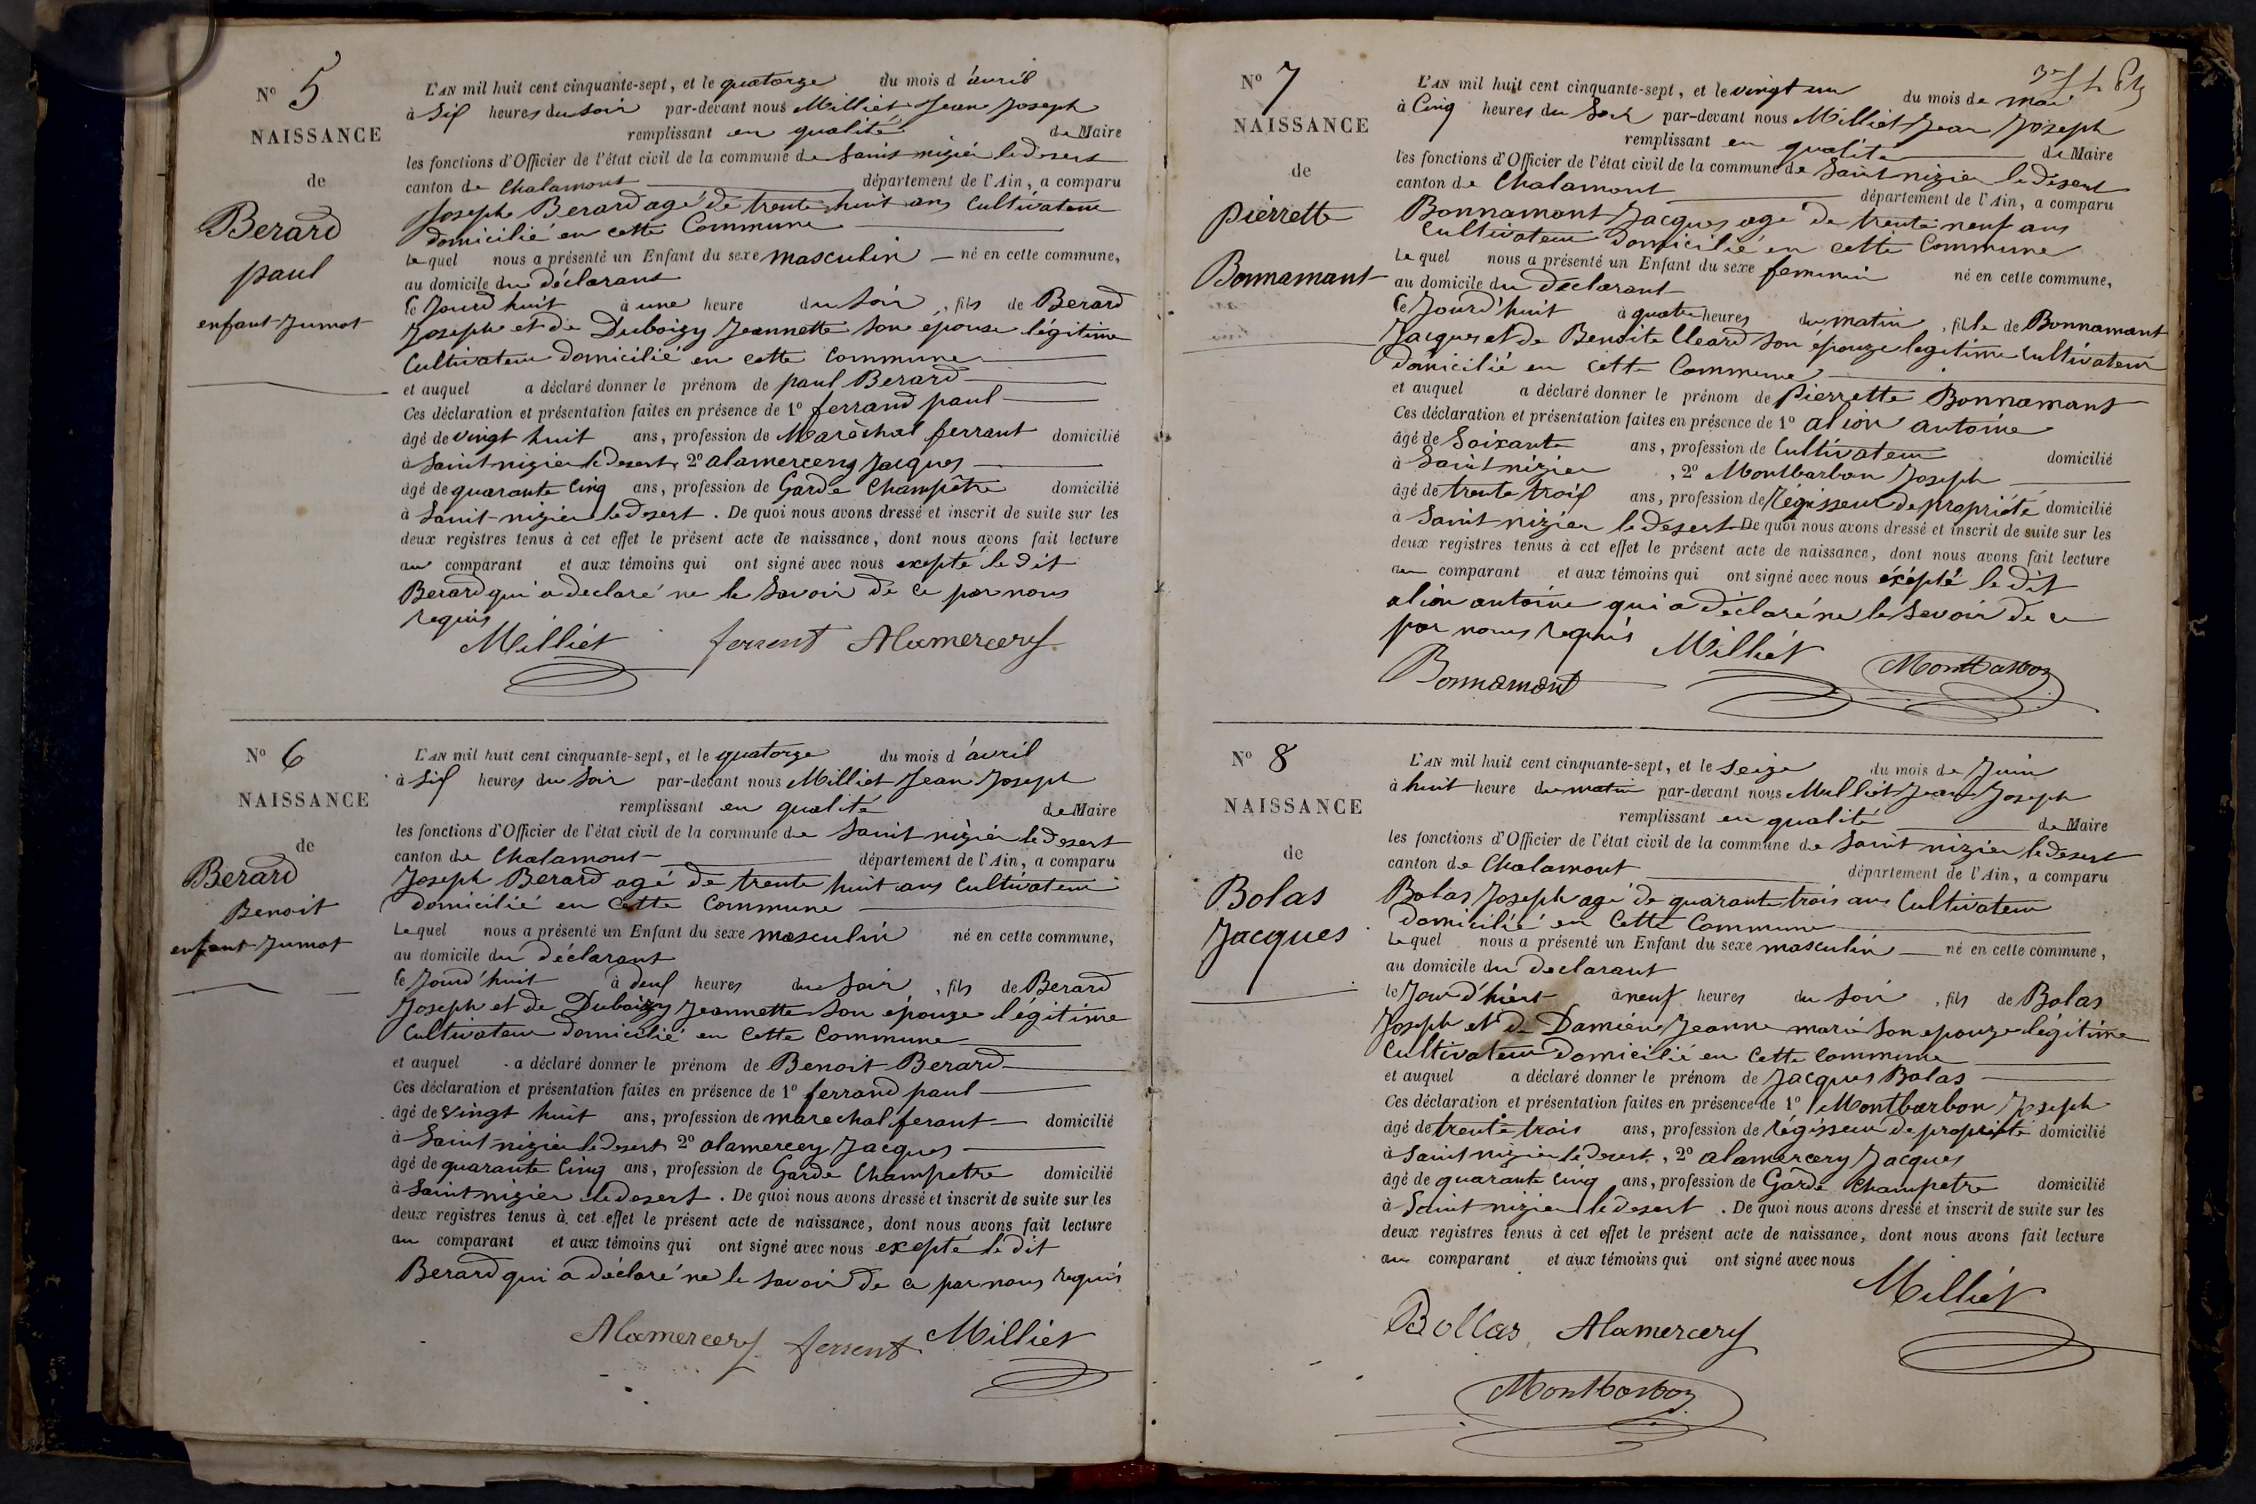 N° 5
NAISSANCE
de
Berard
paul
enfant Jumot
L'AN mil huit cent cinquante-sept, et le quatorze du mois d'avril
à Sif heures du Soir par-devant nous Milliet Jean Joseph
remplissant en qualité de Maire
les fonctions d'Officier de l'état civil de la commune de Saint nizier le desert
canton de Chalamont département de l'Ain, a comparu
Joseph Berard agé de trente huit ans Cultivateur
domicilié en cette Commune
Le quel nous a présenté un Enfant du sexe masculin né en cette commune,
au domicile du déclarant
Ce Jourd huit à une heure du Soir, fils de Berard
Joseph et de Duboizy Jeannette Son épouse légitime
Cultivateur domicilié en cette Commune
et auquel a déclaré donner le prénom de paul Berard
Ces déclaration et présentation faites en présence de 1° ferrand paul
âgé de vingt huit ans, profession de Maréchal ferrant domicilié
à Saint nizier le desert, 2° alamercery Jacques
âgé de quarante Cinq ans, profession de Garde Champêtre domicilié
à Saint-nizier le desert. De quoi nous avons dressé et inscrit de suite sur les
deux registres tenus à cet effet le présent acte de naissance, dont nous avons fait lecture
au comparant et aux témoins qui ont signé avec nous exepté le dit
Berard qui a declaré ne le Savoir de ce par nous
requis
Milliet ferrent Alamercery
N° 6
NAISSANCE
de
Berard
Benoit
enfant Jumot
L'AN mil huit cent cinquante-sept, et le quatorze du mois d'avril
à Sif heures du Soir par-devant nous Milliet Jean Joseph
remplissant en qualité de Maire
les fonctions d'Officier de l'état civil de la commune de Saint nizier le desert
canton de Chalamont département de l'Ain, a comparu
Joseph Berard agé de trente huit ans Cultivateur
domicilié en cette Commune
Le quel nous a présenté un Enfant du sexe masculin né en cette commune,
au domicile du déclarant
Ce Jourd'huit à deuf heures du Soir, fils de Berard
Joseph et de Duboizy Jeannette Son épouze légitime
Cultivateur domicilié en Cette Commune
et auquel a déclaré donner le prénom de Benoit Berard
Ces déclaration et présentation faites en présence de 1° ferrand paul
âgé de vingt huit ans, profession de marechal ferant domicilié
à Saint-nizier le desert 2° alamercery Jacques
âgé de quarante Cinq ans, profession de Garde Champetre domicilié
à Saint nizier le desert. De quoi nous avons dressé et inscrit de suite sur les
deux registres tenus à cet effet le présent acte de naissance, dont nous avons fait lecture
au comparant et aux témoins qui ont signé avec nous exepté le dit
Berard qui a déclaré ne le Savoir de ce par nous requis
Alamercery ferrent Milliet
N° 7
NAISSANCE
de
pierrette
Bonnamant
L'AN mil huit cent cinquante-sept, et le vingt un du mois de mai
à Cinq heures du Soir par-devant nous Milliet Jean Joseph
remplissant en qualité de Maire
les fonctions d'Officier de l'état civil de la commune de Saint nizier le desert
canton de Chalamont département de l'Ain, a comparu
Bonnamant Jacques agé de trente neuf ans
Cultivateur domicilié en cette Commune
Le quel nous a présenté un Enfant du sexe feminin né en cette commune,
au domicile du declarant
Ce Jourd'huit à quatre heures du matin, fille de Bonnamant
Jacques et de Benoite Cleard Son épouze legitime Cultivateur
domicilié en cette Commune
et auquel a déclaré donner le prénom de pierrette Bonnamant
Ces déclaration et présentation faites en présence de 1° alion antoine
âgé de Soixante ans, profession de Cultivateur domicilié
à Saint nizier, 2° Montbarbon Joseph
âgé de trente troif ans, profession de régisseur de propriété domicilié
à Saint nizier le desert De quoi nous avons dressé et inscrit de suite sur les
deux registres tenus à cet effet le présent acte de naissance, dont nous avons fait lecture
au comparant et aux témoins qui ont signé avec nous éxépté le dit
alion antoine qui a déclaré ne le Savoir de ce
par nous requis Milliet Montbarbon
Bonnamant
N° 8
NAISSANCE
de
Bolas
Jacques
L'AN mil huit cent cinquante-sept, et le Seize du mois de Juin
à huit heure du matin par-devant nous Milliet Jean Joseph
remplissant en qualité de Maire
les fonctions d'Officier de l'état civil de la commune de Saint nizier le desert
canton de Chalamont département de l'Ain, a comparu
Bolas Joseph agé de quarante trois ans Cultivateur
domicilié en Cette Commune
Le quel nous a présenté un Enfant du sexe masculin né en cette commune,
au domicile du declarant
le Jour d'hiert à neuf heures du Soir, fils de Bolas
Joseph et de Damien Jeanne marie Son epouze légitime
Cultivateur domicilié en Cette Commune
et auquel a déclaré donner le prénom de Jacques Bolas
Ces déclaration et présentation faites en présence de 1° Montbarbon Joseph
âgé de trente trois ans, profession de régisseur de propriété domicilié
à Saint nizier le desert, 2° alamercery Jacques
âgé de quarante Cinq ans, profession de Garde Champetre domicilié
à Saint nizier le desert. De quoi nous avons dressé et inscrit de suite sur les
deux registres tenus à cet effet le présent acte de naissance, dont nous avons fait lecture
au comparant et aux témoins qui ont signé avec nous
Milliet
Bollas Alamercery
Montbarbon